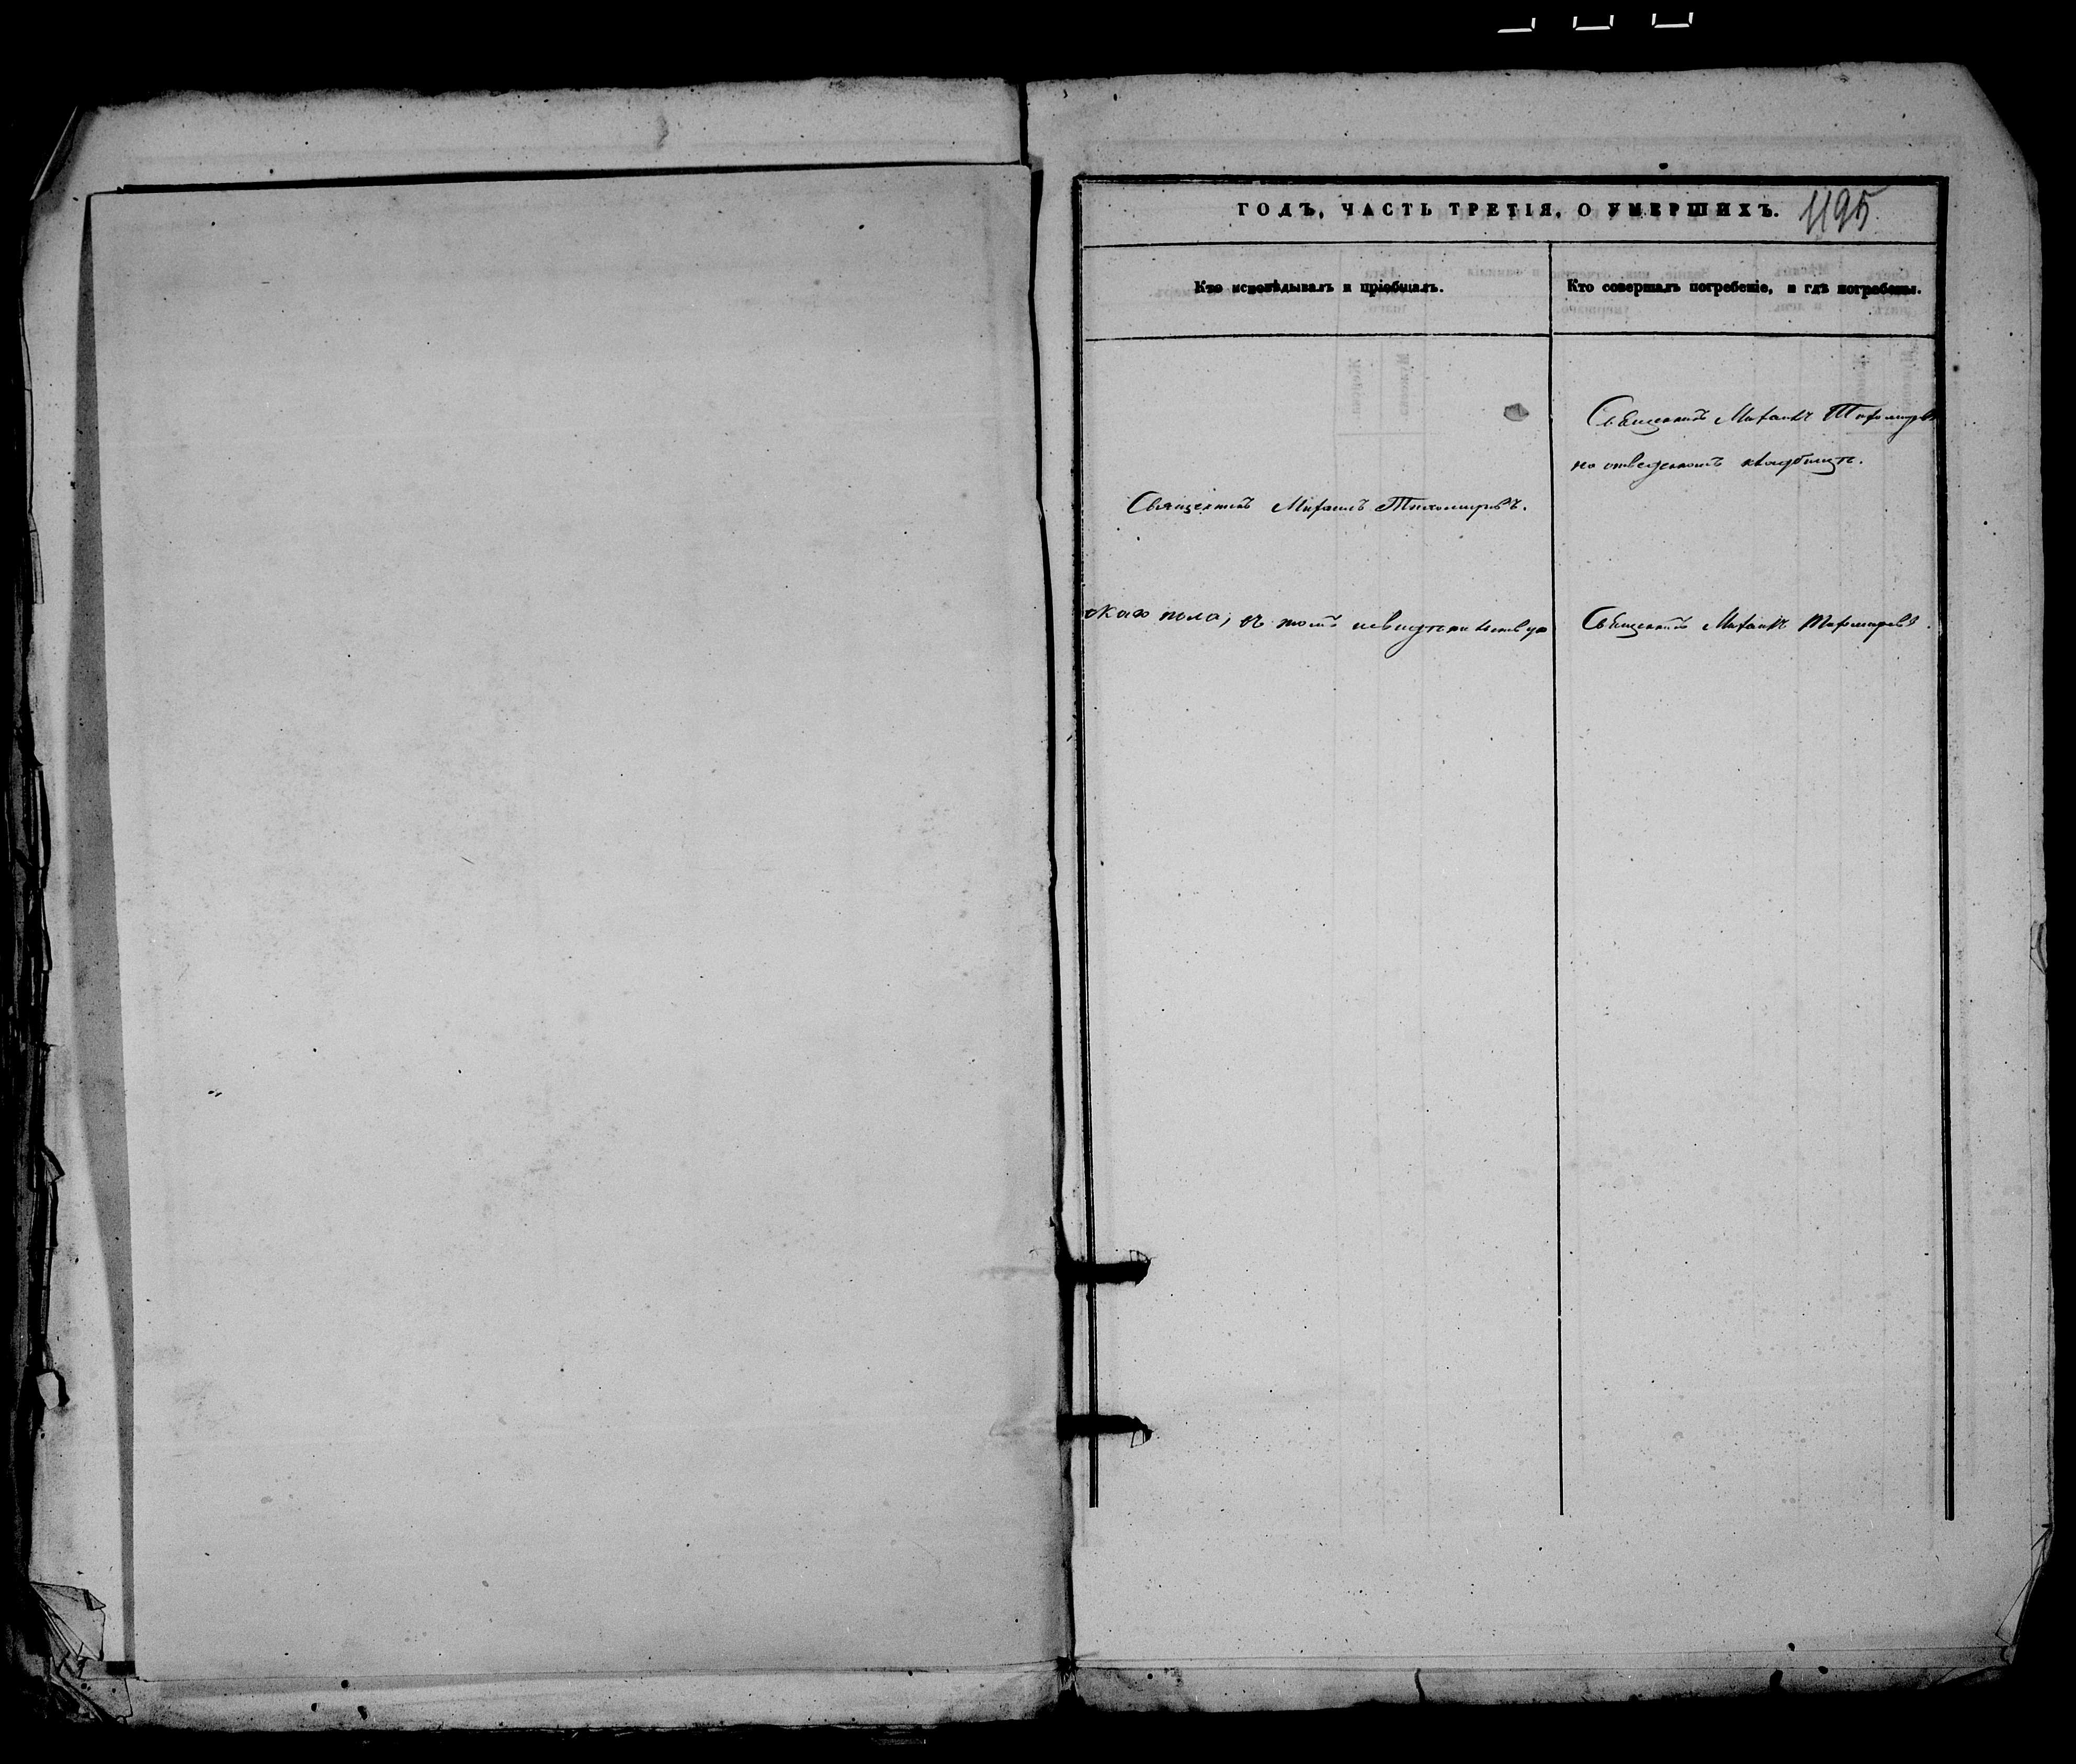 ГОДЪ, ЧАСТЬ ТРЕТІЯ, О УМЕРШИХЪ. 1195
Кто исповѣдывалъ и пріобщалъ.
Кто совершалъ погребеніе, и гдѣ погребены.
Священникъ Михаилъ Тихомировъ
на отведенномъ кладбищѣ.
Священникъ Михаилъ Тихомировъ.
скаго пола, въ томъ свидѣтельствую
Священникъ Михаилъ Тихомировъ.